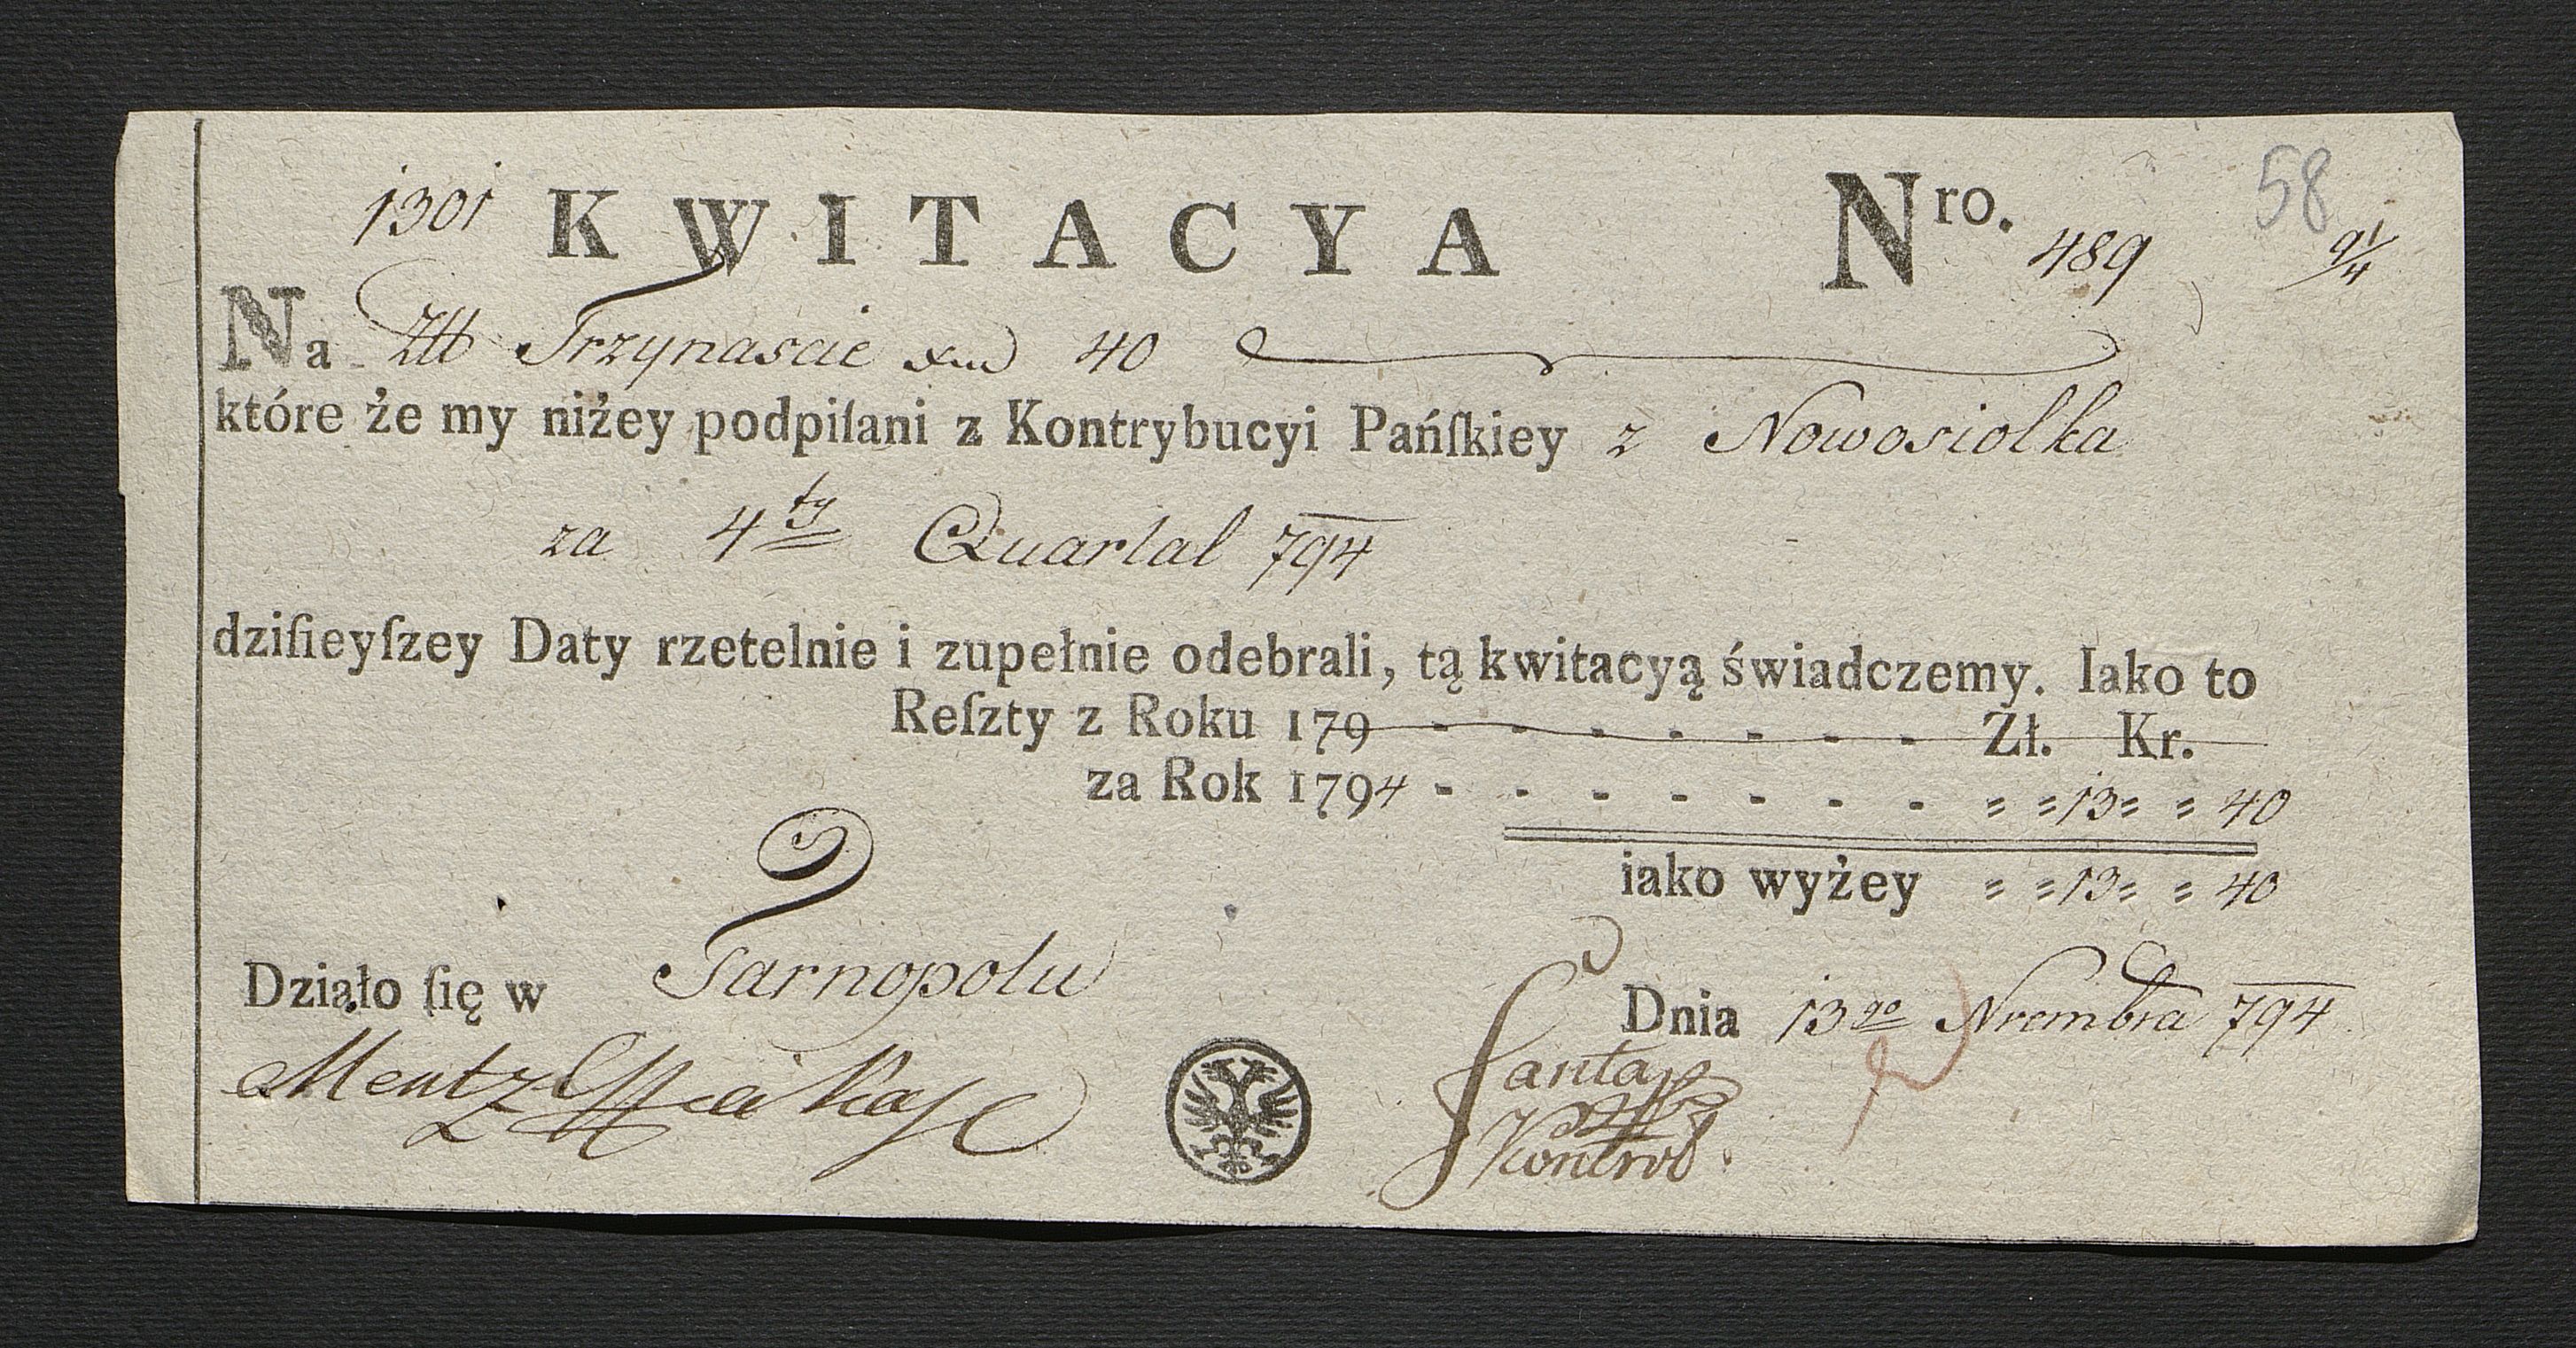 58
1301 KWITACYA Nro. 489 9/4
Na Złł Trzynascie xru 40
które że my niżey podpiſani z Kontrybucyi Pańſkiey z Nowosiolka
za 4ty Quartal 794
dziſieyſzey Daty rzetelnie i zupełnie odebrali, tą kwitacyą świadczemy. Iako to
Reſzty z Roku 179 - - - - - - - Zł. Kr.
za Rok 1794 - - - - - - - " " 13 " " 40
iako wyżey " " 13 " " 40
Działo ſię w Tarnopolu
Dnia 13go Nrembra 794
Mentz
Santa
Kontrol